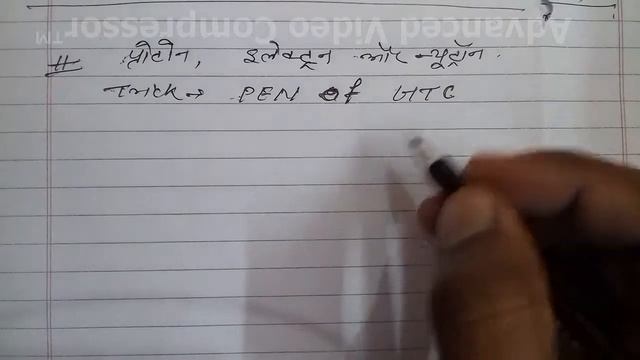 Advanced Video Compressor™
# प्रोटोन, इलेक्ट्रॉन और न्यूट्रॉन.
Trick → PEN of